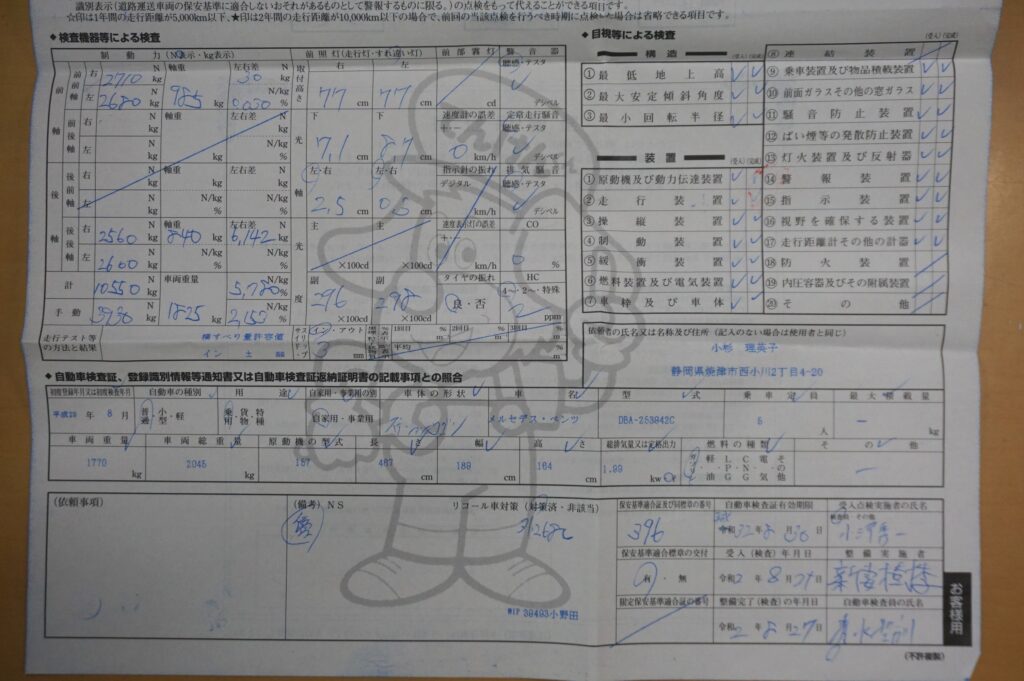 識別表示(道路運送車両の保安基準に適合しないおそれがあるものとして警報するものに限る。)の点検をもって代えることができる項目です。
☆印は1年間の走行距離が5,000km以下、★印は2年間の走行距離が10,000km以下の場合で、前回の当該点検を行うべき時期に点検した場合は省略できる項目です。
◆検査機器等による検査
制動力(N表示・kg表示)
前照灯(走行灯・すれ違い灯)
前部霧灯
警音器
前前軸 右 2710 N kg 軸重 985 kg 左右差 30 N kg
左 2680 N kg 0,030 %
取付高さ 右 77 cm 左 77 cm
cd
聴感・テスタ
デシベル
前後軸 右 N kg 軸重 kg 左右差 N/kg
左 N kg %
光軸 下 7,1 cm 下 8,7 cm
速度計の誤差 +・− 0 km/h
定常走行騒音 聴感・テスタ デシベル
後前軸 右 N kg 軸重 kg 左右差 N/kg
左 N kg %
左・右 2,5 cm 左・右 0,5 cm
指示針の振れ デジタル km/h
排気騒音 聴感・テスタ デシベル
後後軸 右 2560 N kg 軸重 840 kg 左右差 6,142 N/kg
左 2600 N kg %
光度 主 ×100cd 主 ×100cd
速度表示灯の誤差 + − km/h
CO 0 %
計 10550 N kg 車両重量 1825 kg 5,780 N/kg %
手動 3930 N kg 2,153 N/kg %
副 296 ×100cd 副 298 ×100cd
タイヤの振れ 良・否
HC 4〜・2〜・特殊 2 ppm
走行テスト等の方法と結果
横すべり量許容値
イン 土
サイドスリップ イン・アウト mm
1回目 % 2回目 % 3回目 %
平均
◆目視等による検査
構造 (受入)(完成)
①最低地上高
②最大安定傾斜角度
③最小回転半径
装置 (受入)(完成)
①原動機及び動力伝達装置
②走行装置
③操縦装置
④制動装置
⑤緩衝装置
⑥燃料装置及び電気装置
⑦車枠及び車体
(受入)(完成)
⑧連結装置
⑨乗車装置及び物品積載装置
⑩前面ガラスその他の窓ガラス
⑪騒音防止装置
⑫ばい煙等の発散防止装置
⑬灯火装置及び反射器
⑭警報装置
⑮指示装置
⑯視野を確保する装置
⑰走行距離計その他の計器
⑱防火装置
⑲内圧容器及びその附属装置
⑳その他
依頼者の氏名又は名称及び住所(記入のない場合は使用者と同じ)
小杉 理英子
静岡県焼津市西小川2丁目4-20
◆自動車検査証、登録識別情報等通知書又は自動車検査証返納証明書の記載事項との照合
初度登録年月又は初度検査年月 自動車の種別 用途 自家用・事業用の別 車体の形状 車名 型式 乗車定員 最大積載量
平成29年 8月 普通・小型・軽 乗用・貨物・特種 自家用・事業用 ステーションワゴン メルセデス・ベンツ DBA-253942C 5 人 — kg
車両重量 車両総重量 原動機の型式 長さ 幅 高さ 総排気量又は定格出力 燃料の種類 その他
1770 kg 2045 kg cm 189 cm 164 cm 1.99 kw ガソリン 軽油 L・P・G C・N・G 電気 その他 —
(依頼事項)
(備考) NS
リコール車対策(対策済・非該当)
WIP 39493小野田
保安基準適合証及び同標章の番号 396
自動車検査証有効期限 令和32年8月30日
受入点検実施者の氏名 検査員・その他
保安基準適合標章の交付 有・無
受入(検査)年月日 令和2年8月27日
整備実施者
限定保安基準適合証の番号
整備完了(検査)の年月日 令和2年8月27日
自動車検査員の氏名
お客様用
(不許複製)